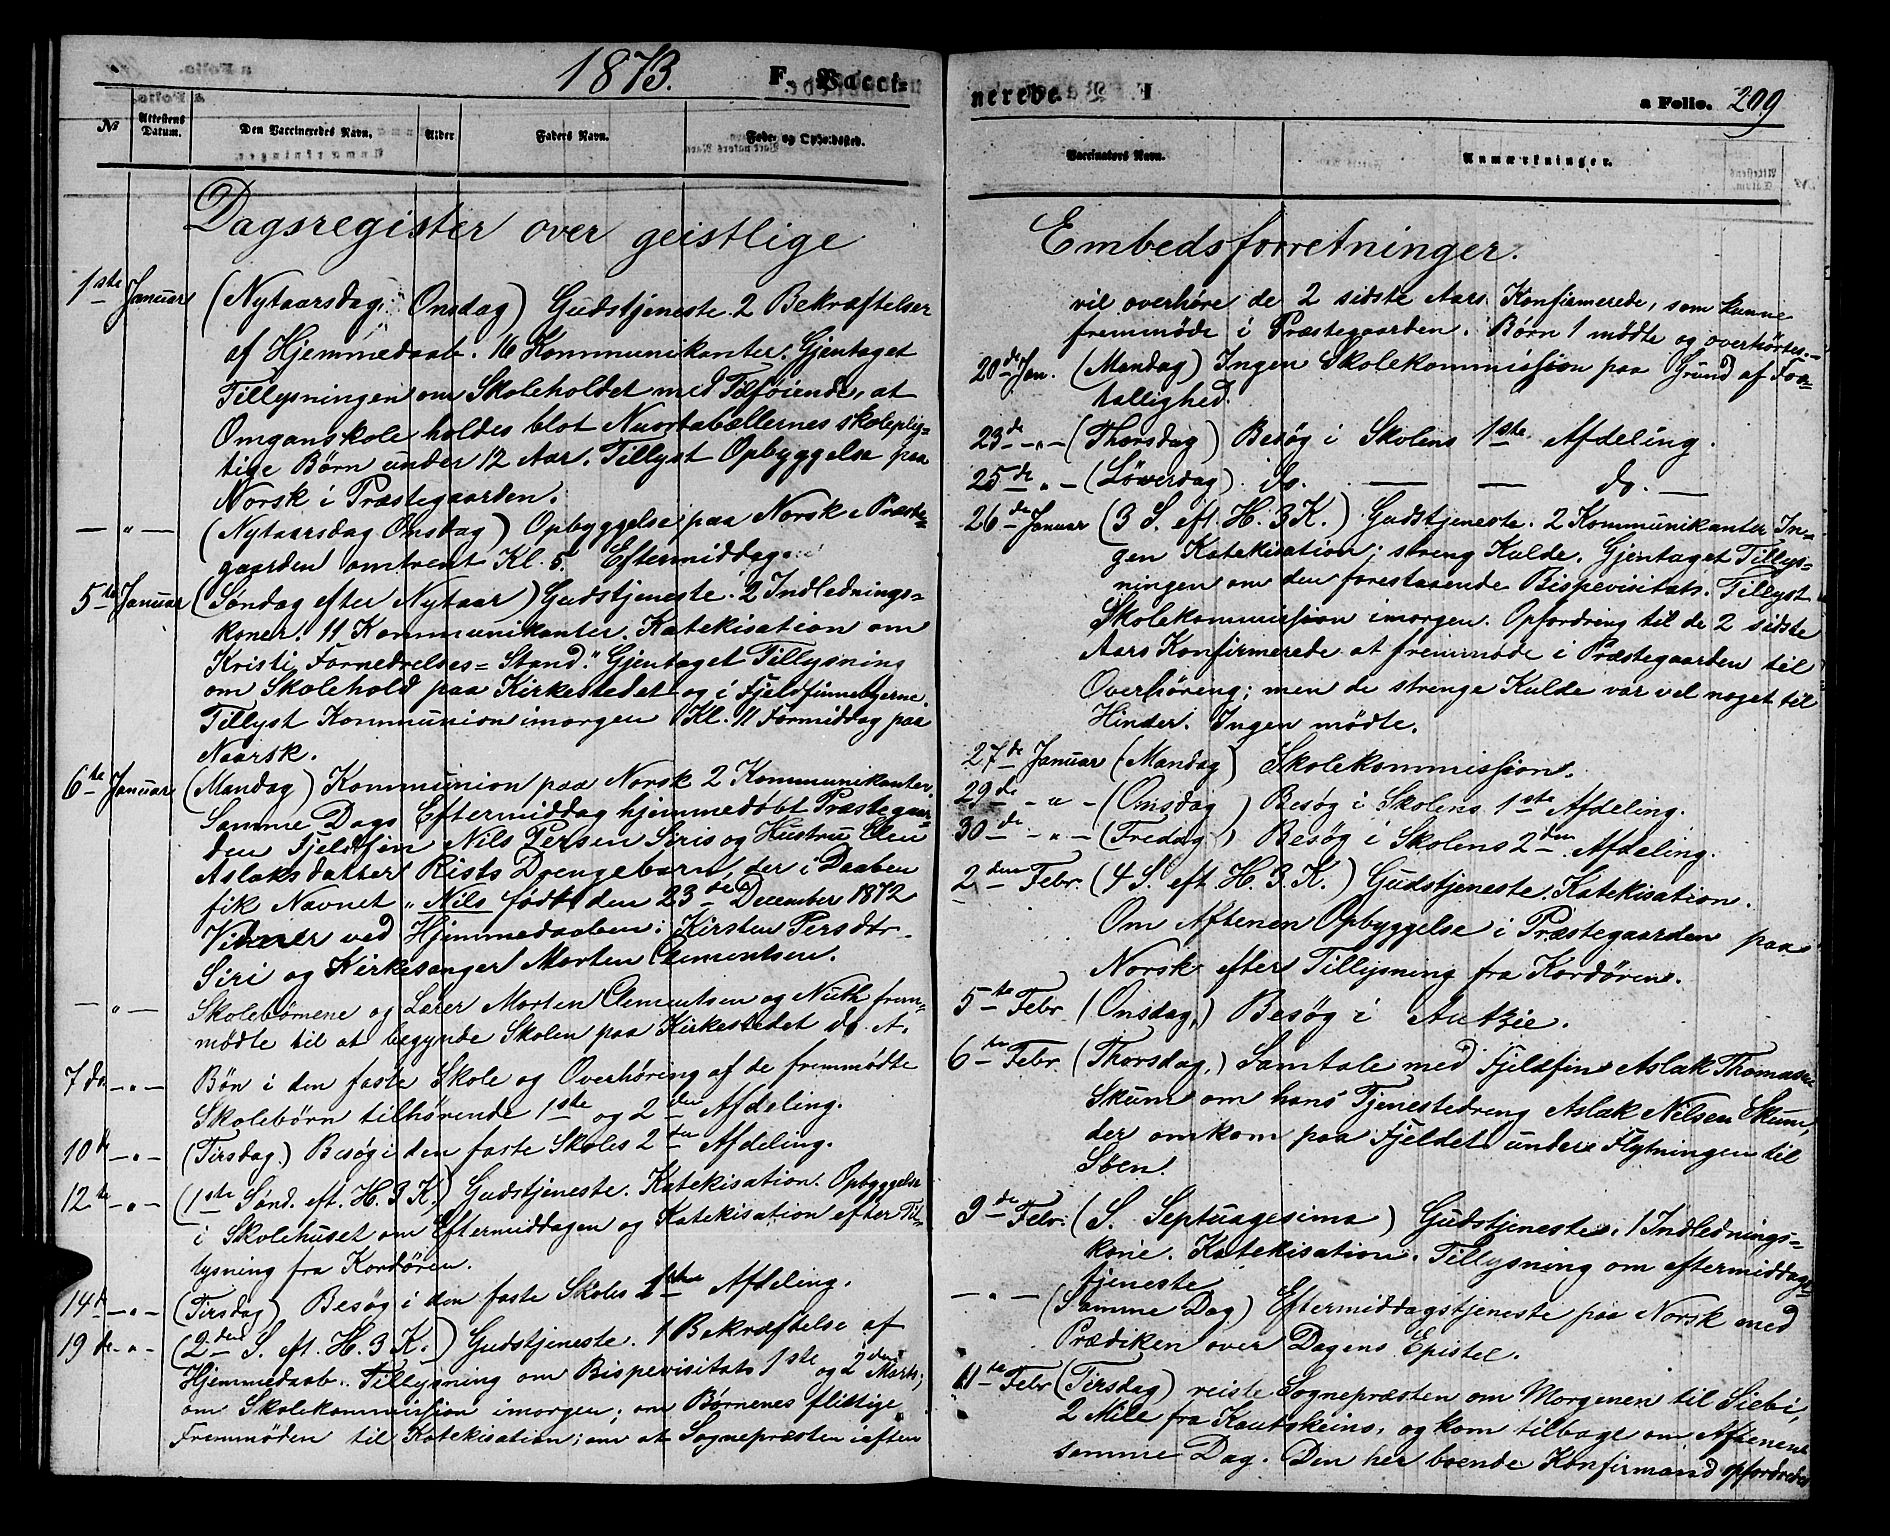 1873. F. Vacci=
№ Attestens Datum. Den Vaccineredes Navn. Alder Faders Navn. Føde= og Opholdssted.
Dagsregister over geistlige
1ste Januar (Nytaarsdag. Onsdag) Gudstjeneste. 2 Bekræftelser
af Hjemmedaab. 16 Kommunikanter. Gjentaget
Tillysningen om Skoleholdet med Tilføiende, at
Omganskole holdes blot Nuortabællernes skoleplig=
tige Børn under 12 Aar. Tillyst Opbyggelse paa
Norsk i Præstegaarden.
— " — (Nytaarsdag Onsdag) Opbyggelse paa Norsk i Præste=
gaarden omtrent Kl. 5. Eftermiddag.
5te Januar (Søndag efter Nytaar) Gudstjeneste. 2 Indlednings=
koner. 11 Kommunikanter. Katekisation om
Kristi Fornedrelses=Stand." Gjentaget Tillysning
om Skolehold paa Kirkestedet og i Fjeldfinnebyerne.
Tillyst Kommunion imorgen Kl. 11 Formiddag paa
Noorsk.
6te Januar (Mandag) Kommunion paa Norsk 2 Kommunikanter.
Samme Dags Eftermiddag hjemmedøbt Præstegaar=
den Fjeldfin Nils Persen Siris og Hustru Elen
Aslaksdatter Rists Drengebarn, der i Daaben
fik Navnet "Nils født den 23de December 1872
Vidner ved Hjemmedaaben: Kirsten Persdtr.
Siri og Kirkesanger Morten Clementsen.
— " — Skolebørnene og Lærer Morten Clementsen og Nuth frem=
mødte til at begynde Skolen paa Kirkestedet d. A.
7 do — " — Bøn i den faste Skole og Overhøring af de fremmødte
Skolebørn tilhørende 1ste og 2den Afdeling.
10 d — " — (Tirsdag.) Besøg i den faste Skoles 2den Afdeling.
12te — " — (1ste Sønd. eft. H. 3 K.) Gudstjeneste. Katekisation. Opbyggelse
i Skolehuset om Eftermiddagen og Katekisation efter Til=
lysning fra Kordøren.
14 d — " — (Tirsdag) Besøg i den faste Skoles 1ste Afdeling.
19 de — " — (2den S. eft. H. 3 K.) Gudstjeneste. 1 Bekræftelse af
Hjemmedaab. Tillysning om Bispevisitats 1ste og 2den Marts;
om Skolekommission imorgen; om Børnenes flittige
Fremmøden til Katekisation; om at Sognepræsten iaften
nerede. a Folio. 299
Vaccinators Navn. Anmærkninger.
Embedsforretninger.
vil overhøre de 2 sidste Aars Konfirmerede, som kunne
fremmøde i Præstegaarden. Børn 1 mødte og overhørtes.—
20de Jan. (Mandag) Ingen Skolekommission paa Grund af Faa=
tallighed.
23de — " — (Thorsdag) Besøg i Skolens 1ste Afdeling.
25de " — (Løverdag) do. — — do. —
26de Januar (3 S. eft. H. 3 K.) Gudstjeneste. 2 Kommunikanter In=
gen Katekisation; streng Kulde. Gjentaget Tillys=
ningen om den forestaaende Bispevisitats. Tillyst
Skolekommission imorgen. Opfordring til de 2 sidste
Aars Konfirmerede at fremmøde i Præstegaarden til
Overhøring; men de strenge Kulde var vel noget til
Hinder. Ingen mødte.
27de Januar (Mandag) Skolekommission.
29de — " — (Onsdag) Besøg i Skolens 1ste Afdeling.
30de — " — (Fredag) Besøg i Skolens 2den Afdeling.
2den Febr. (4 S. eft. H. 3 K.) Gudstjeneste. Katekisation.
Om Aftenen Opbyggelse i Præstegaarden paa
Norsk efter Tillysning fra Kordøren.
5te Febr (Onsdag,) Besøg i Autzie.
6te Febr. (Thorsdag.) Samtale med Fjeldfin Aslak Thomasen
Skum om hans Tjenestedreng Aslak Nilsen Skum,
der omkom paa Fjeldet under Flytningen til
Søen.
9de Febr. (S. Septuagesima) Gudstjeneste. 1 Indlednings=
kone. Katekisation. Tillysning om eftermiddags=
tjeneste
— " — (Samme Dag) Eftermiddagstjeneste paa Norsk med
Prædiken over Dagens Epistel.
11te Febr (Tirsdag) reiste Sognepræsten om Morgenen til Siebi,
2 Mile fra Kautokeino, og kom tilbage om Aftenen
samme Dag. Den her boende Konfirmand opfordredes